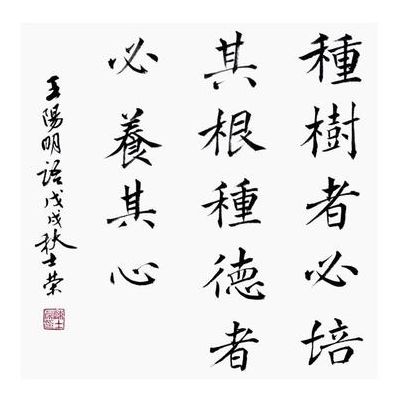 種樹者必培
其根種德者
必養其心
王陽明語戊戌秋士榮